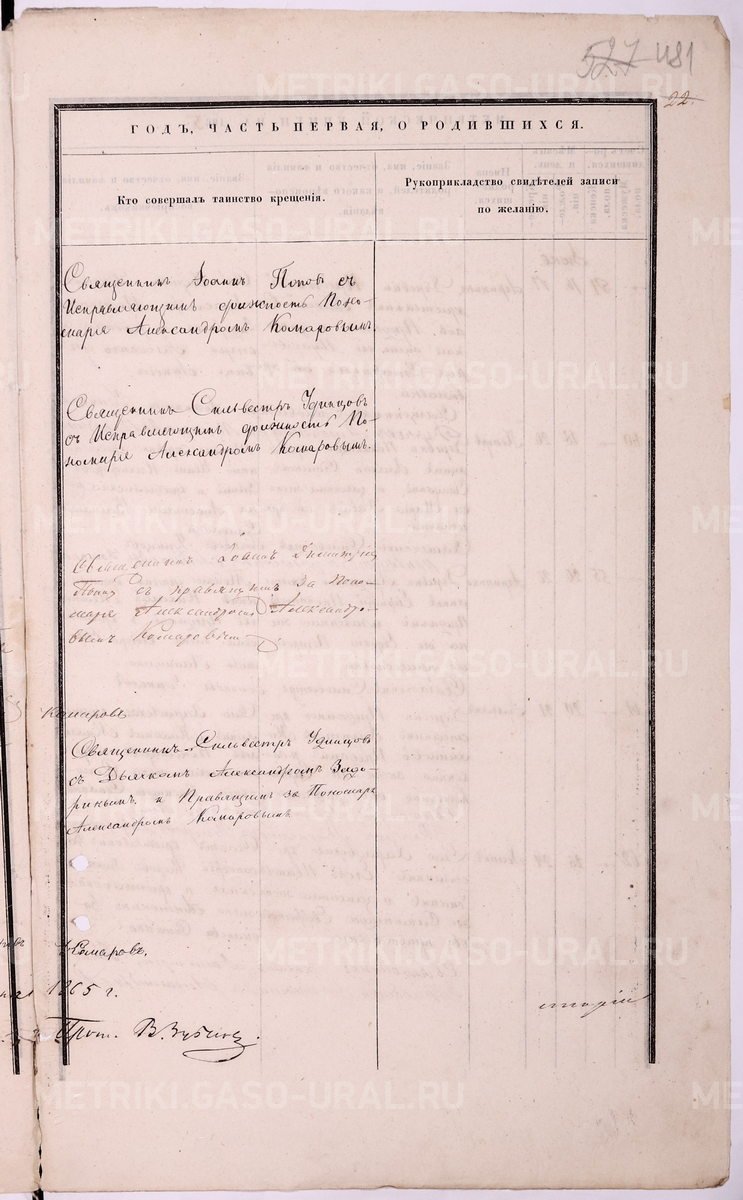 527 481
22.
ГОДЪ, ЧАСТЬ ПЕРВАЯ, О РОДИВШИХСЯ.
Кто совершалъ таинство крещенія.
Рукоприкладство свидѣтелей записи
по желанію.
Священникъ Іоаннъ Поповъ съ
Исправляющимъ должность Поно-
маря Александромъ Комаровымъ
Священникъ Сильвестръ Удинцовъ
съ Исправляющимъ должность По-
номаря Александромъ Комаровымъ.
Священникъ Іоаннъ
Поповъ съ правящимъ за Поно-
маря Александромъ Александро-
вымъ Комаровымъ
Комаровъ
Священникъ Сильвестръ Удинцовъ
съ Дьячкомъ Александромъ
и Правящимъ за Пономаря
Александромъ Комаровымъ
Комаровъ.
1865 г.
Прот. В.
METRIKI.GASO-URAL.RU